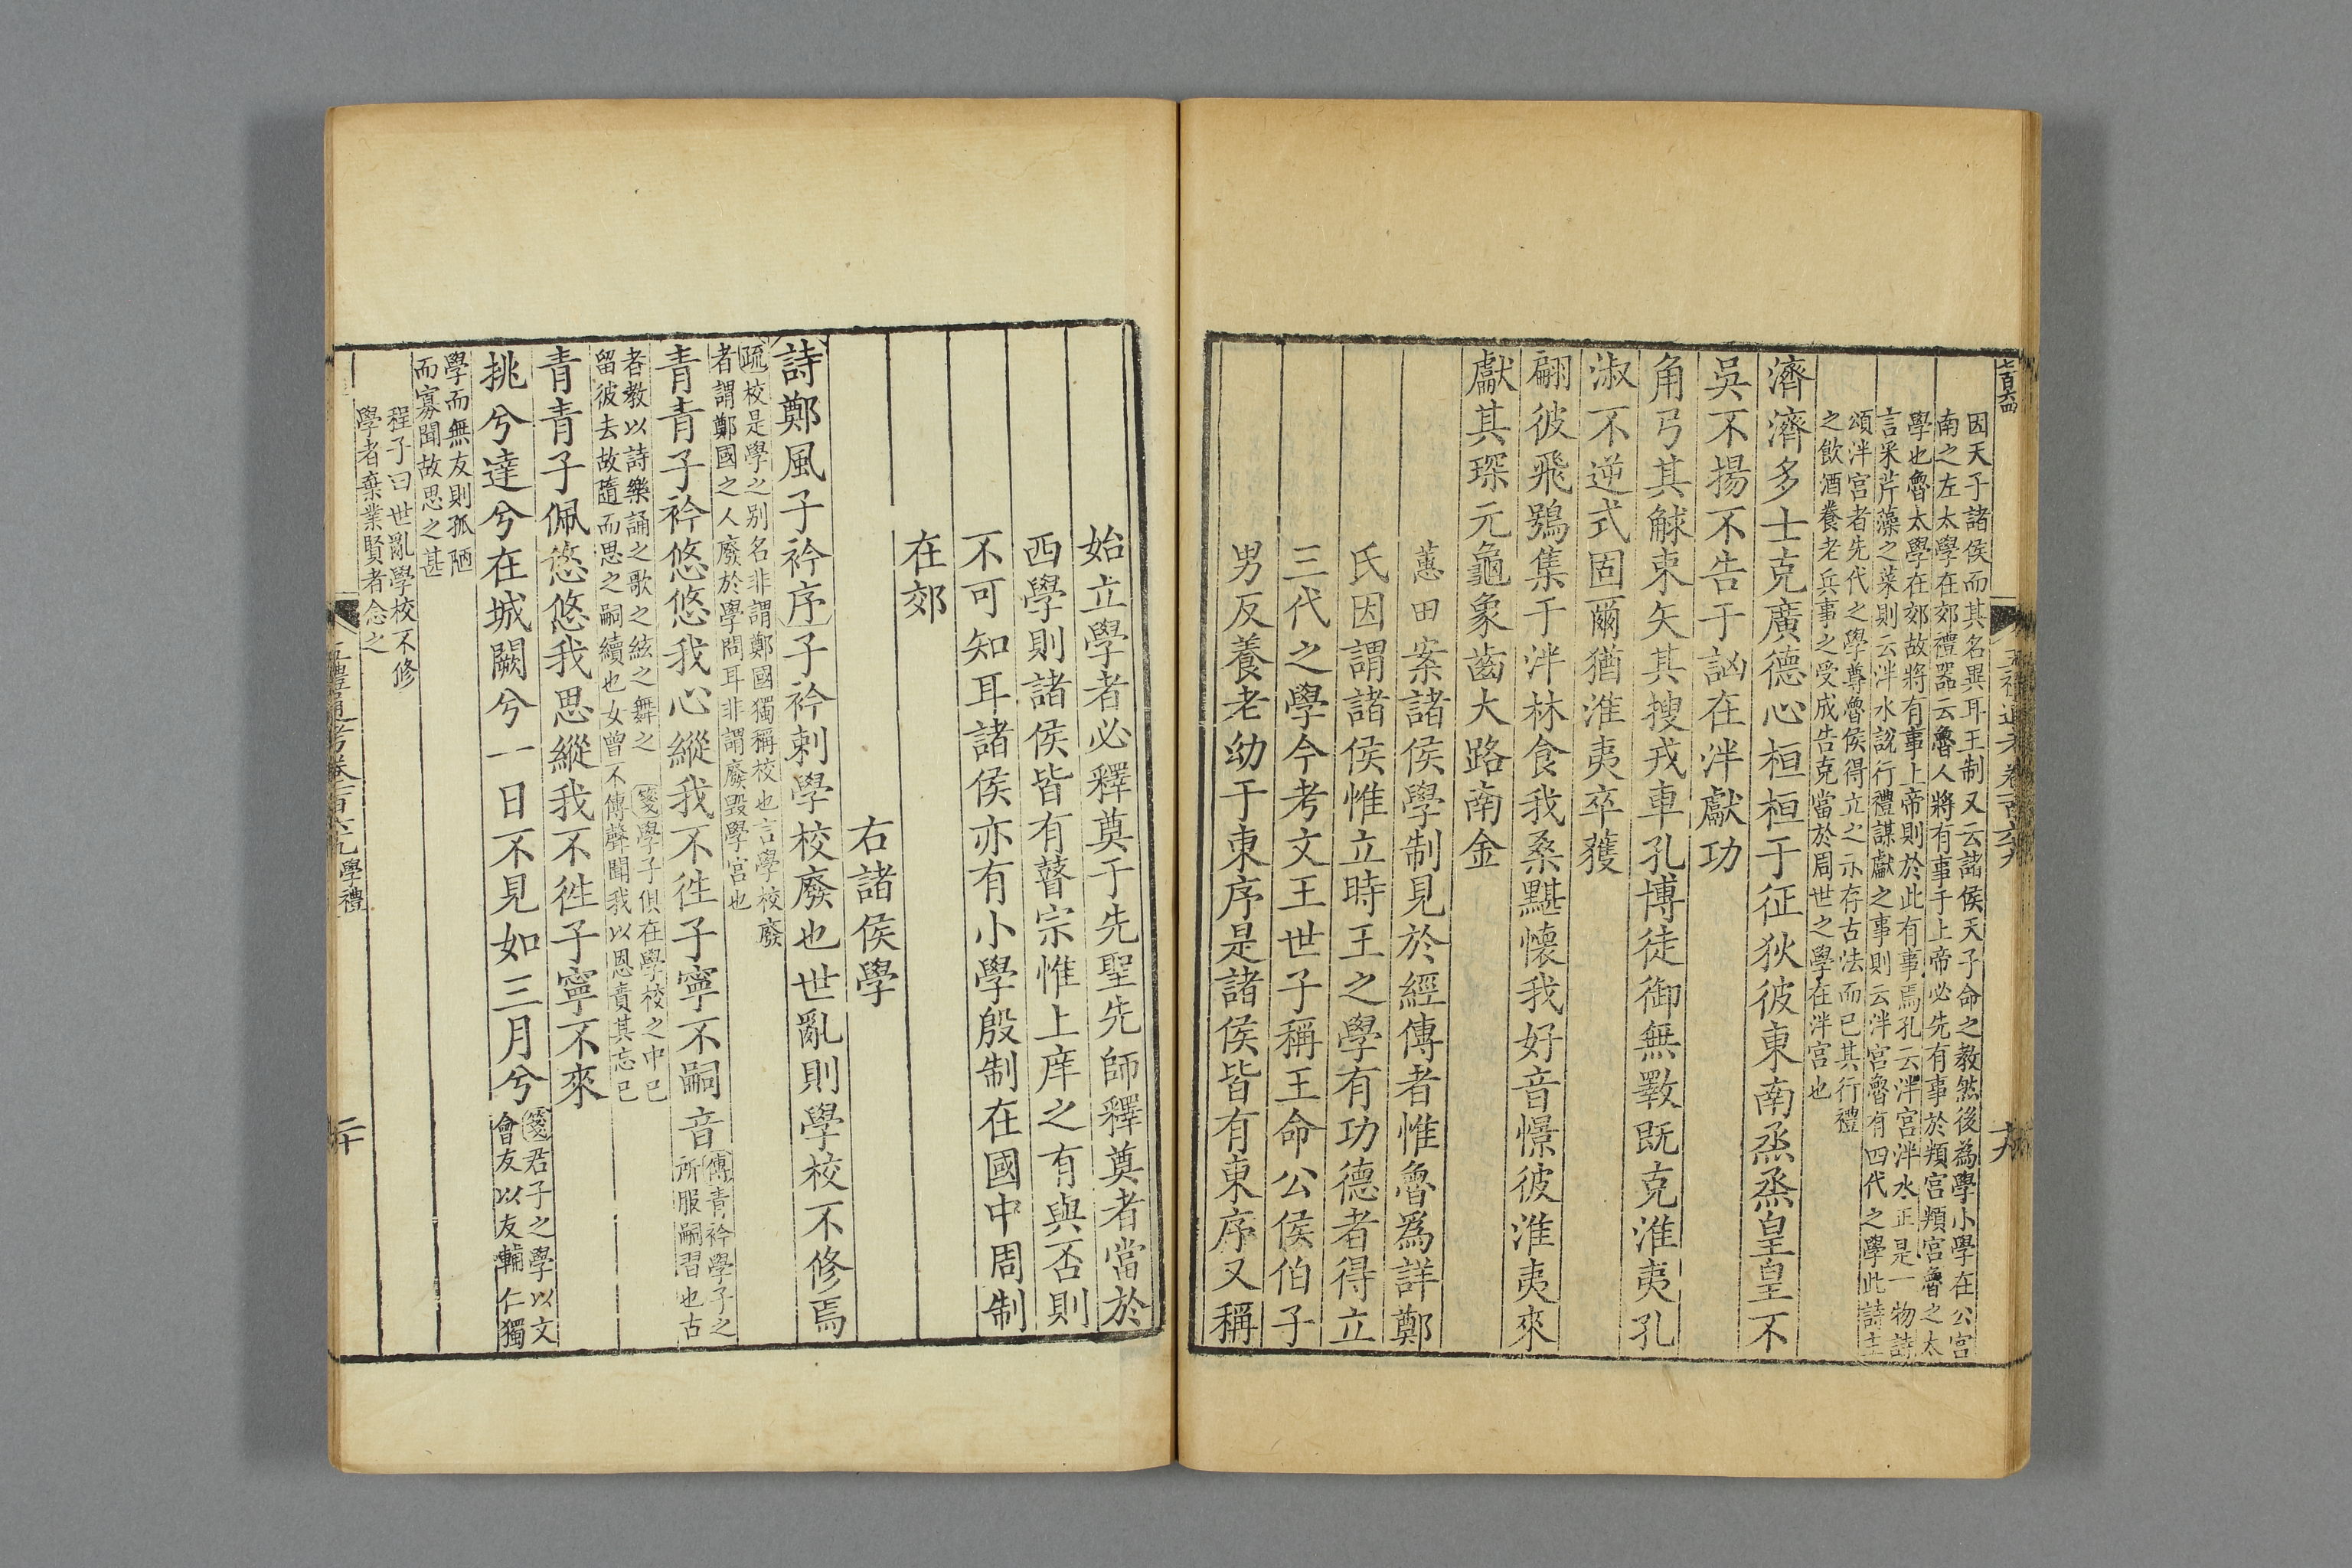 七百六四
因天子諸侯而其名異耳王制又云諸侯天子命之教然後為學小學在公宮
南之左太學在郊禮器云魯人將有事于上帝必先有事於頖宮頖宮魯之太
學也魯太學在郊故將有事上帝則於此有事焉孔云泮宮泮水正是一物詩
言采芹藻之菜則云泮水說行禮謀獻之事則云泮宮魯有四代之學此詩主
頌泮宮者先代之學尊魯侯得立之示存古法而已其行禮
之飲酒養老兵事之受成告克當於周世之學在泮宮也
濟濟多士克廣德心桓桓于征狄彼東南烝烝皇皇不
吳不揚不告于訩在泮獻功
角弓其觩束矢其搜戎車孔博徒御無斁既克淮夷孔
淑不逆式固爾猶淮夷卒獲
翩彼飛鴞集于泮林食我桑黮懷我好音憬彼淮夷來
獻其琛元龜象齒大路南金
蕙田案諸侯學制見於經傳者惟魯爲詳鄭
氏因謂諸侯惟立時王之學有功德者得立
三代之學今考文王世子稱王命公侯伯子
男反養老幼于東序是諸侯皆有東序又稱
始立學者必釋奠于先聖先師釋奠者當於
西學則諸侯皆有瞽宗惟上庠之有與否則
不可知耳諸侯亦有小學殷制在國中周制
在郊
右諸侯學
詩鄭風子衿序子衿刺學校廢也世亂則學校不修焉
疏校是學之別名非謂鄭國獨稱校也言學校廢
者謂鄭國之人廢於學問耳非謂廢毀學宮也
青青子衿悠悠我心縱我不徃子寧不嗣音傳青衿學子之
所服嗣習也古
者教以詩樂誦之歌之絃之舞之 箋學子俱在學校之中已
留彼去故隨而思之嗣續也女曾不傳聲聞我以恩責其忘已
青青子佩悠悠我思縱我不徃子寧不來
挑兮達兮在城闕兮一日不見如三月兮箋君子之學以文
會友以友輔仁獨
學而無友則孤陋
而寡聞故思之甚
程子曰世亂學校不修
學者棄業賢者念之
五禮通考卷一百六九 學禮
二十